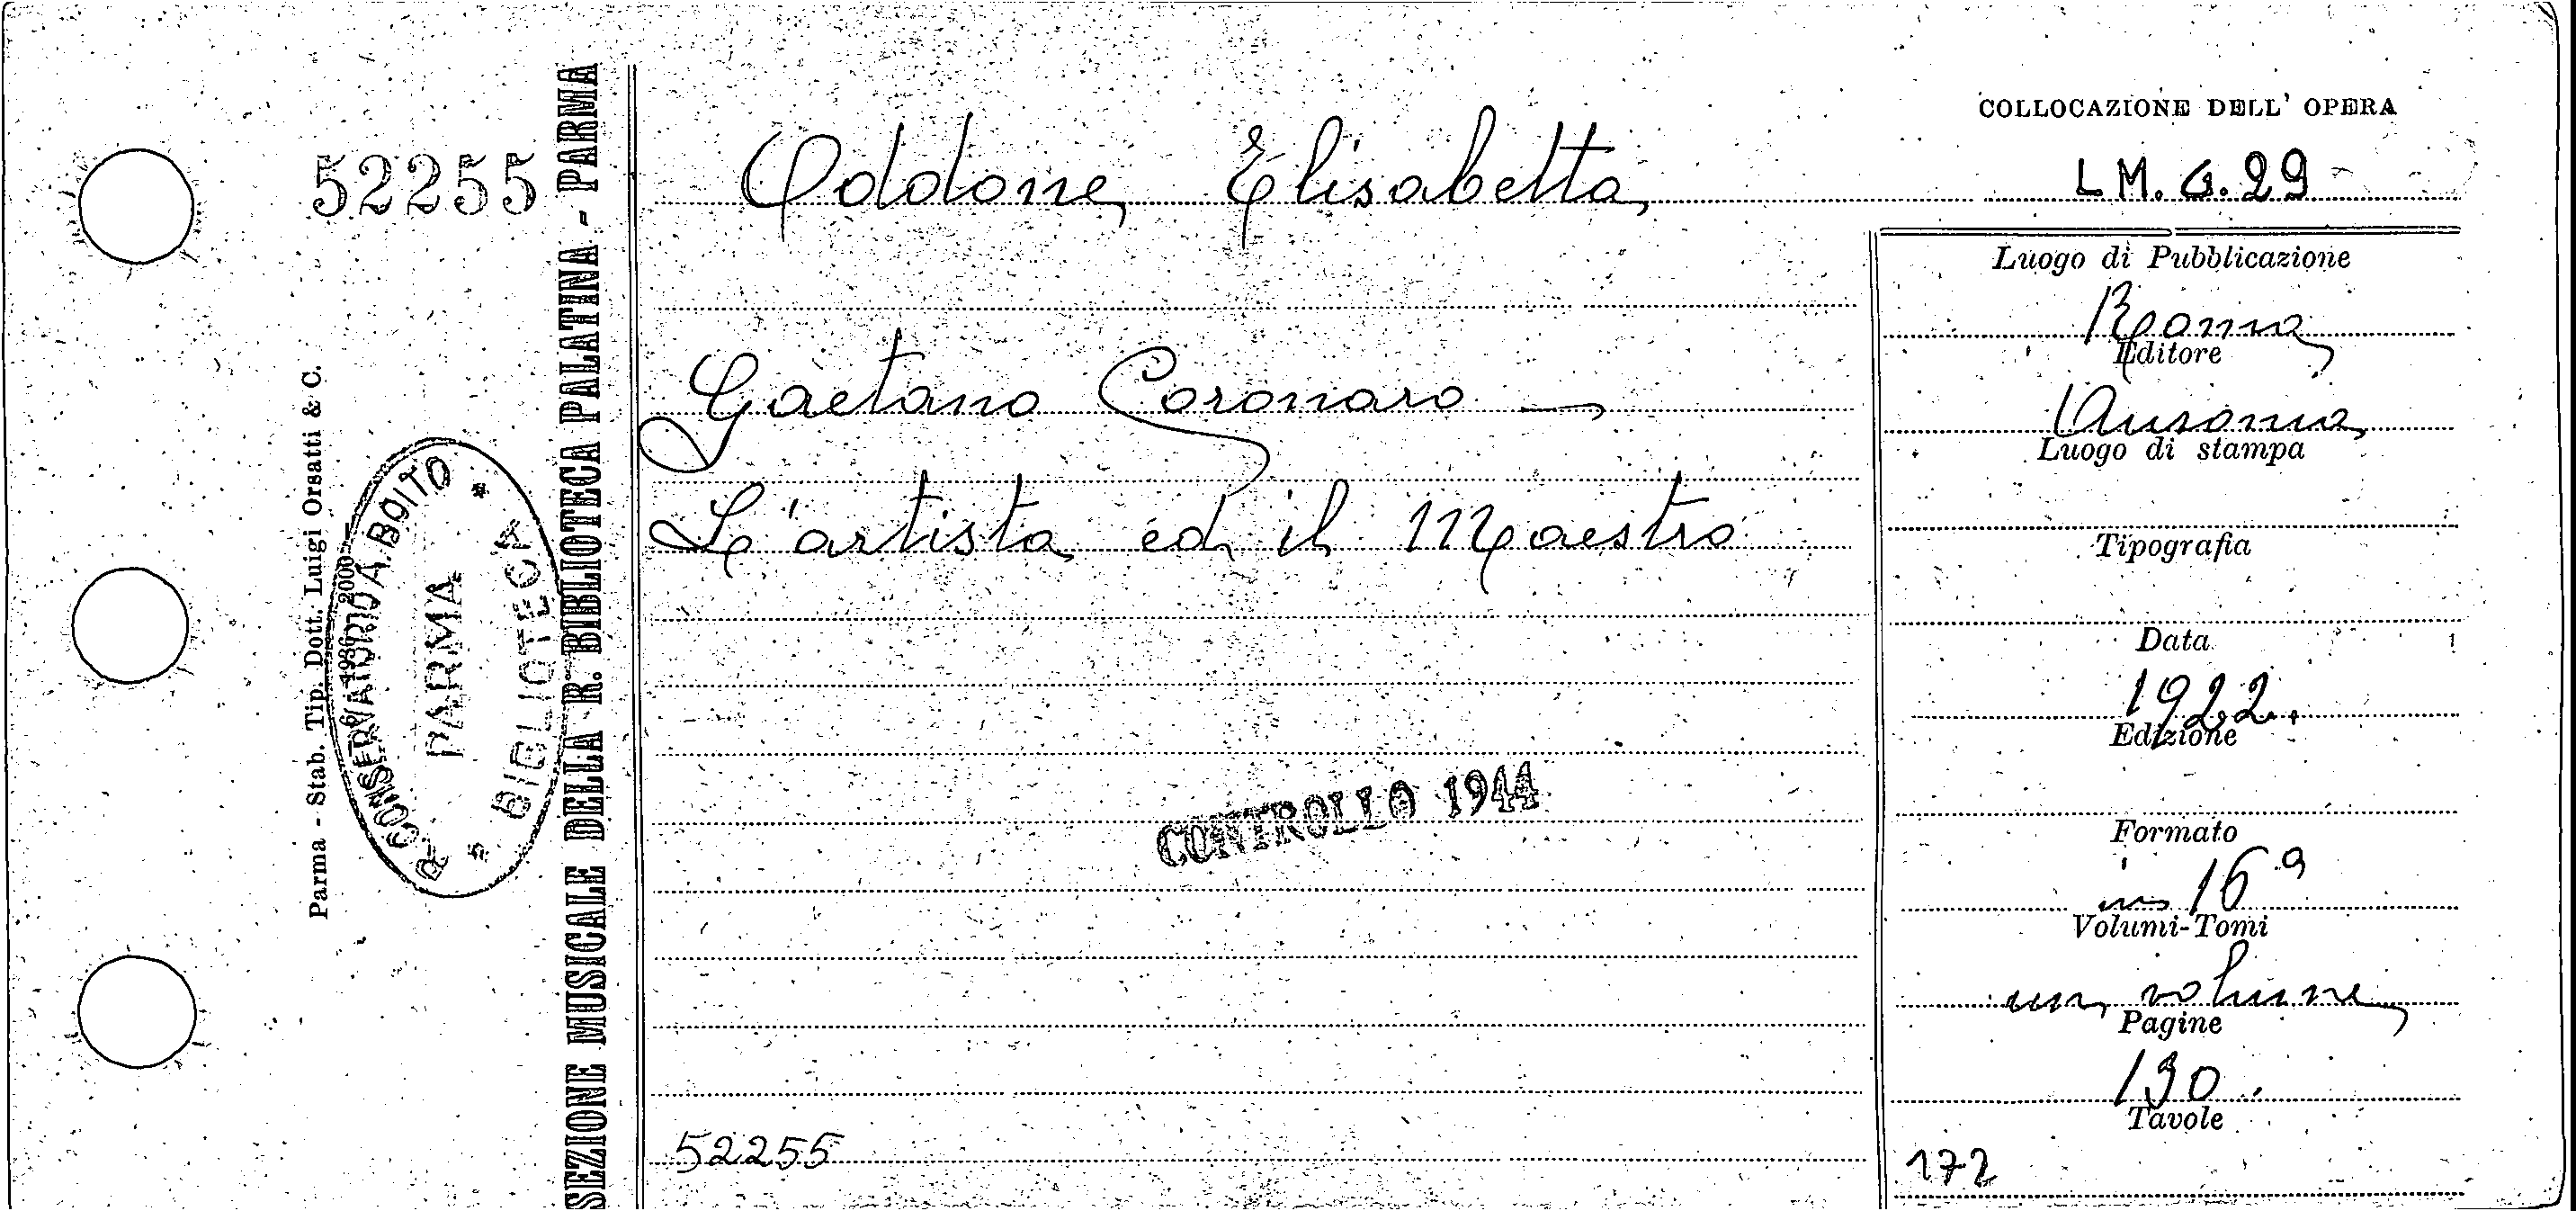 52255
Parma - Stab. Tip. Dott. Luigi Orsatti & C.
6-1936 - 2000
R. CONSERVATORIO A. BOITO
PARMA
BIBLIOTECA
SEZIONE MUSICALE DELLA R. BIBLIOTECA PALATINA - PARMA
Oddone Elisabetta
Gaetano Coronaro —
L'artista ed il Maestro
CONTROLLO 1944
52255
COLLOCAZIONE DELL' OPERA
LM. G. 29
Luogo di Pubblicazione
Roma
Editore
Ausonia
Luogo di stampa
Tipografia
Data
1922.
Edizione
Formato
in 16º
Volumi-Tomi
un volume
Pagine
130
Tavole
172